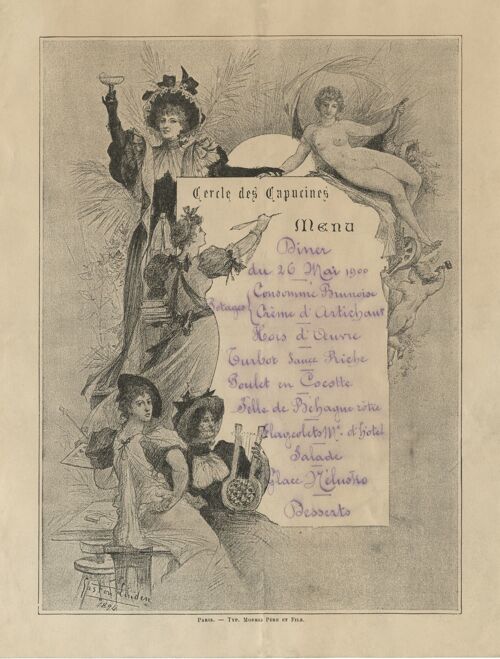 Cercle des Capucines
Menu
Diner
du 26 Mai 1900
Potages { Consommé Brunoise
Crème d'Artichaut
Hors d'Œuvre
Turbot Sauce Riche
Poulet en Cocotte
Selle de Béhague rôtie
Flageolets Mt. d'hotel
Salade
Glace
Desserts
Gaston Linden
1894
Paris. — Typ. Morris Père et Fils.